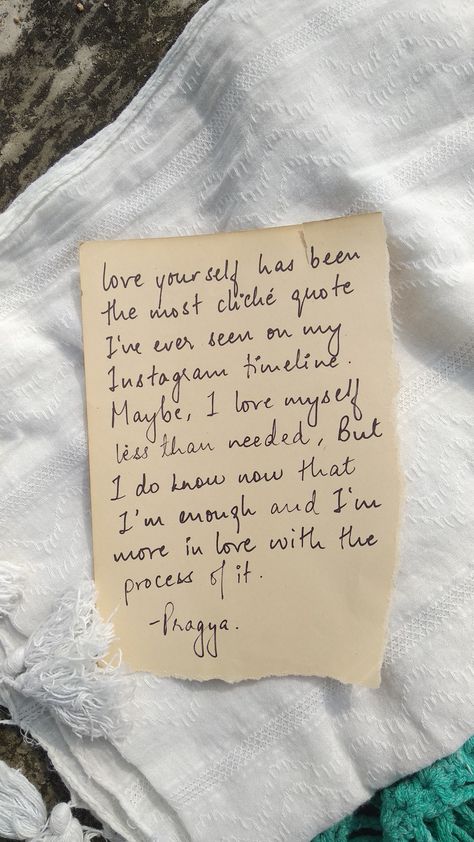 love yourself has been
the most cliché quote
I've ever seen on my
Instagram timeline.
Maybe, I love myself
less than needed, But
I do know now that
I'm enough and I'm
more in love with the
process of it.
-Pragya.